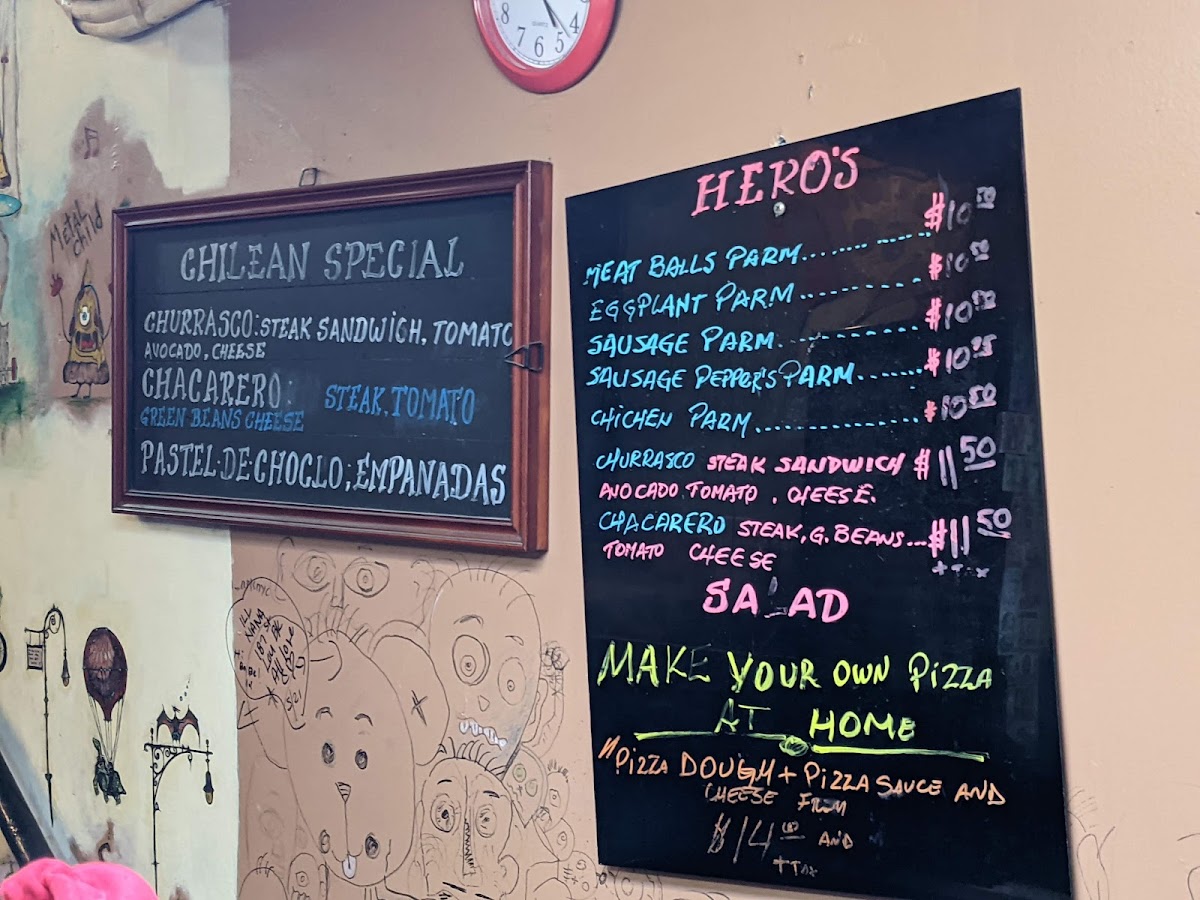 8 7 6 5 4
QUARTZ
Metal
child
CHILEAN SPECIAL
CHURRASCO: STEAK SANDWICH, TOMATO
AVOCADO, CHEESE
CHACARERO: STEAK, TOMATO
GREEN BEANS CHEESE
PASTEL DE CHOCLO; EMPANADAS
HERO'S
MEAT BALLS PARM........ ....... $10 50
EGGPLANT PARM............ $10 50
SAUSAGE PARM............... $10 50
SAUSAGE PEPPER'S PARM....... $10 95
CHICHEN PARM................ $10 50
CHURRASCO STEAK SANDWICH $11 50
AVOCADO, TOMATO, CHEESE.
CHACARERO STEAK, G. BEANS... $11 50
TOMATO CHEESE + TAX
SALAD
MAKE YOUR OWN PIZZA
AT HOME
"PIZZA DOUGH + PIZZA SAUCE AND
CHEESE
$14 AND
+ TAX